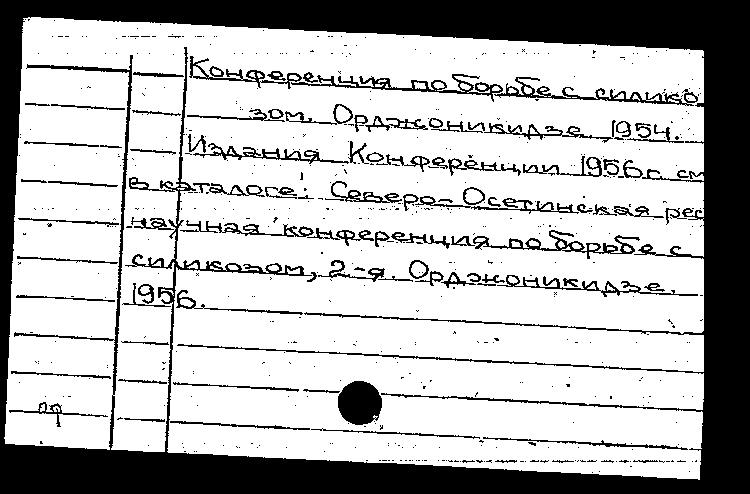 Конференция по борьбе с силико
зом. Орджоникидзе. 1954.
Издания Конференции 1956г. см
в каталоге: Северо-Осетинская рес
научная конференция по борьбе с
силикозом, 2-я. Орджоникидзе.
1956.